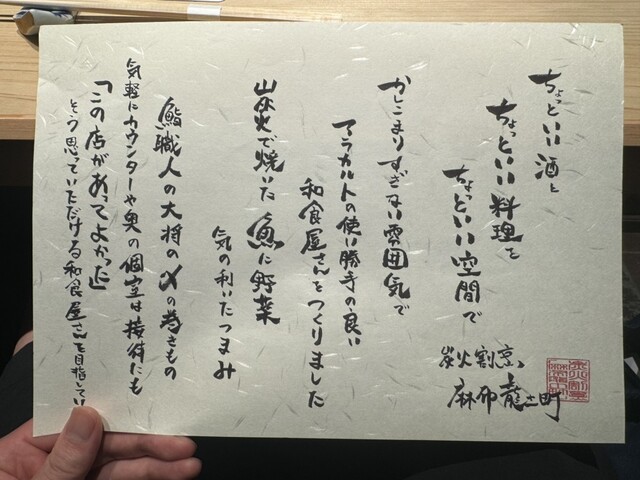 ちょっといい酒と
ちょっといい料理を
ちょっといい空間で
かしこまりすぎない雰囲気で
アラカルトの使い勝手の良い
和食屋さんをつくりました
炭火で焼いた魚に野菜
気の利いたつまみ
鮨職人の大将の〆の巻きもの
気軽にカウンターや奥の個室は接待にも
「この店があってよかった」
そう思っていただける和食屋さんを目指してい
炭火割烹
麻布龍土町